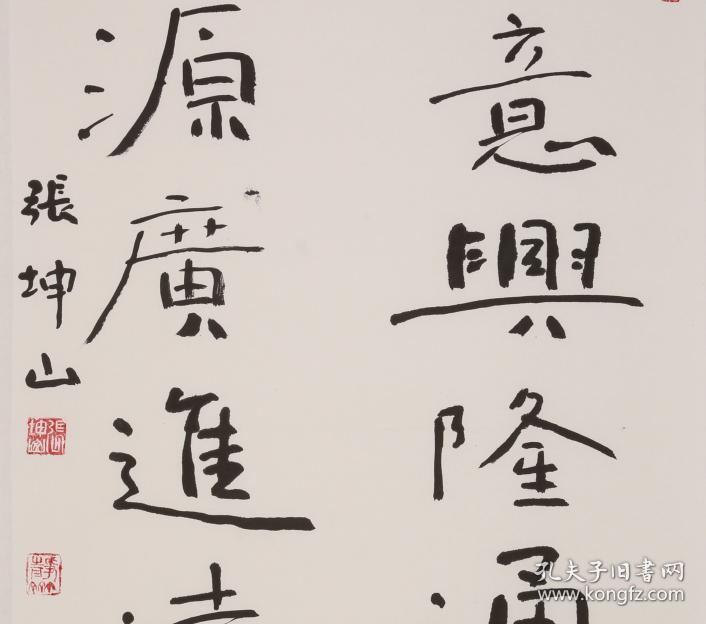 意興隆通
源廣進
張坤山
孔夫子旧书网
www.kongfz.com